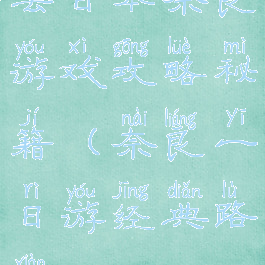 日本奈良
yóu xì gōng lüè mì
游戏攻略秘
jí nài liáng yī
籍（奈良一
rì yóu jīng diǎn lù
日游经典路